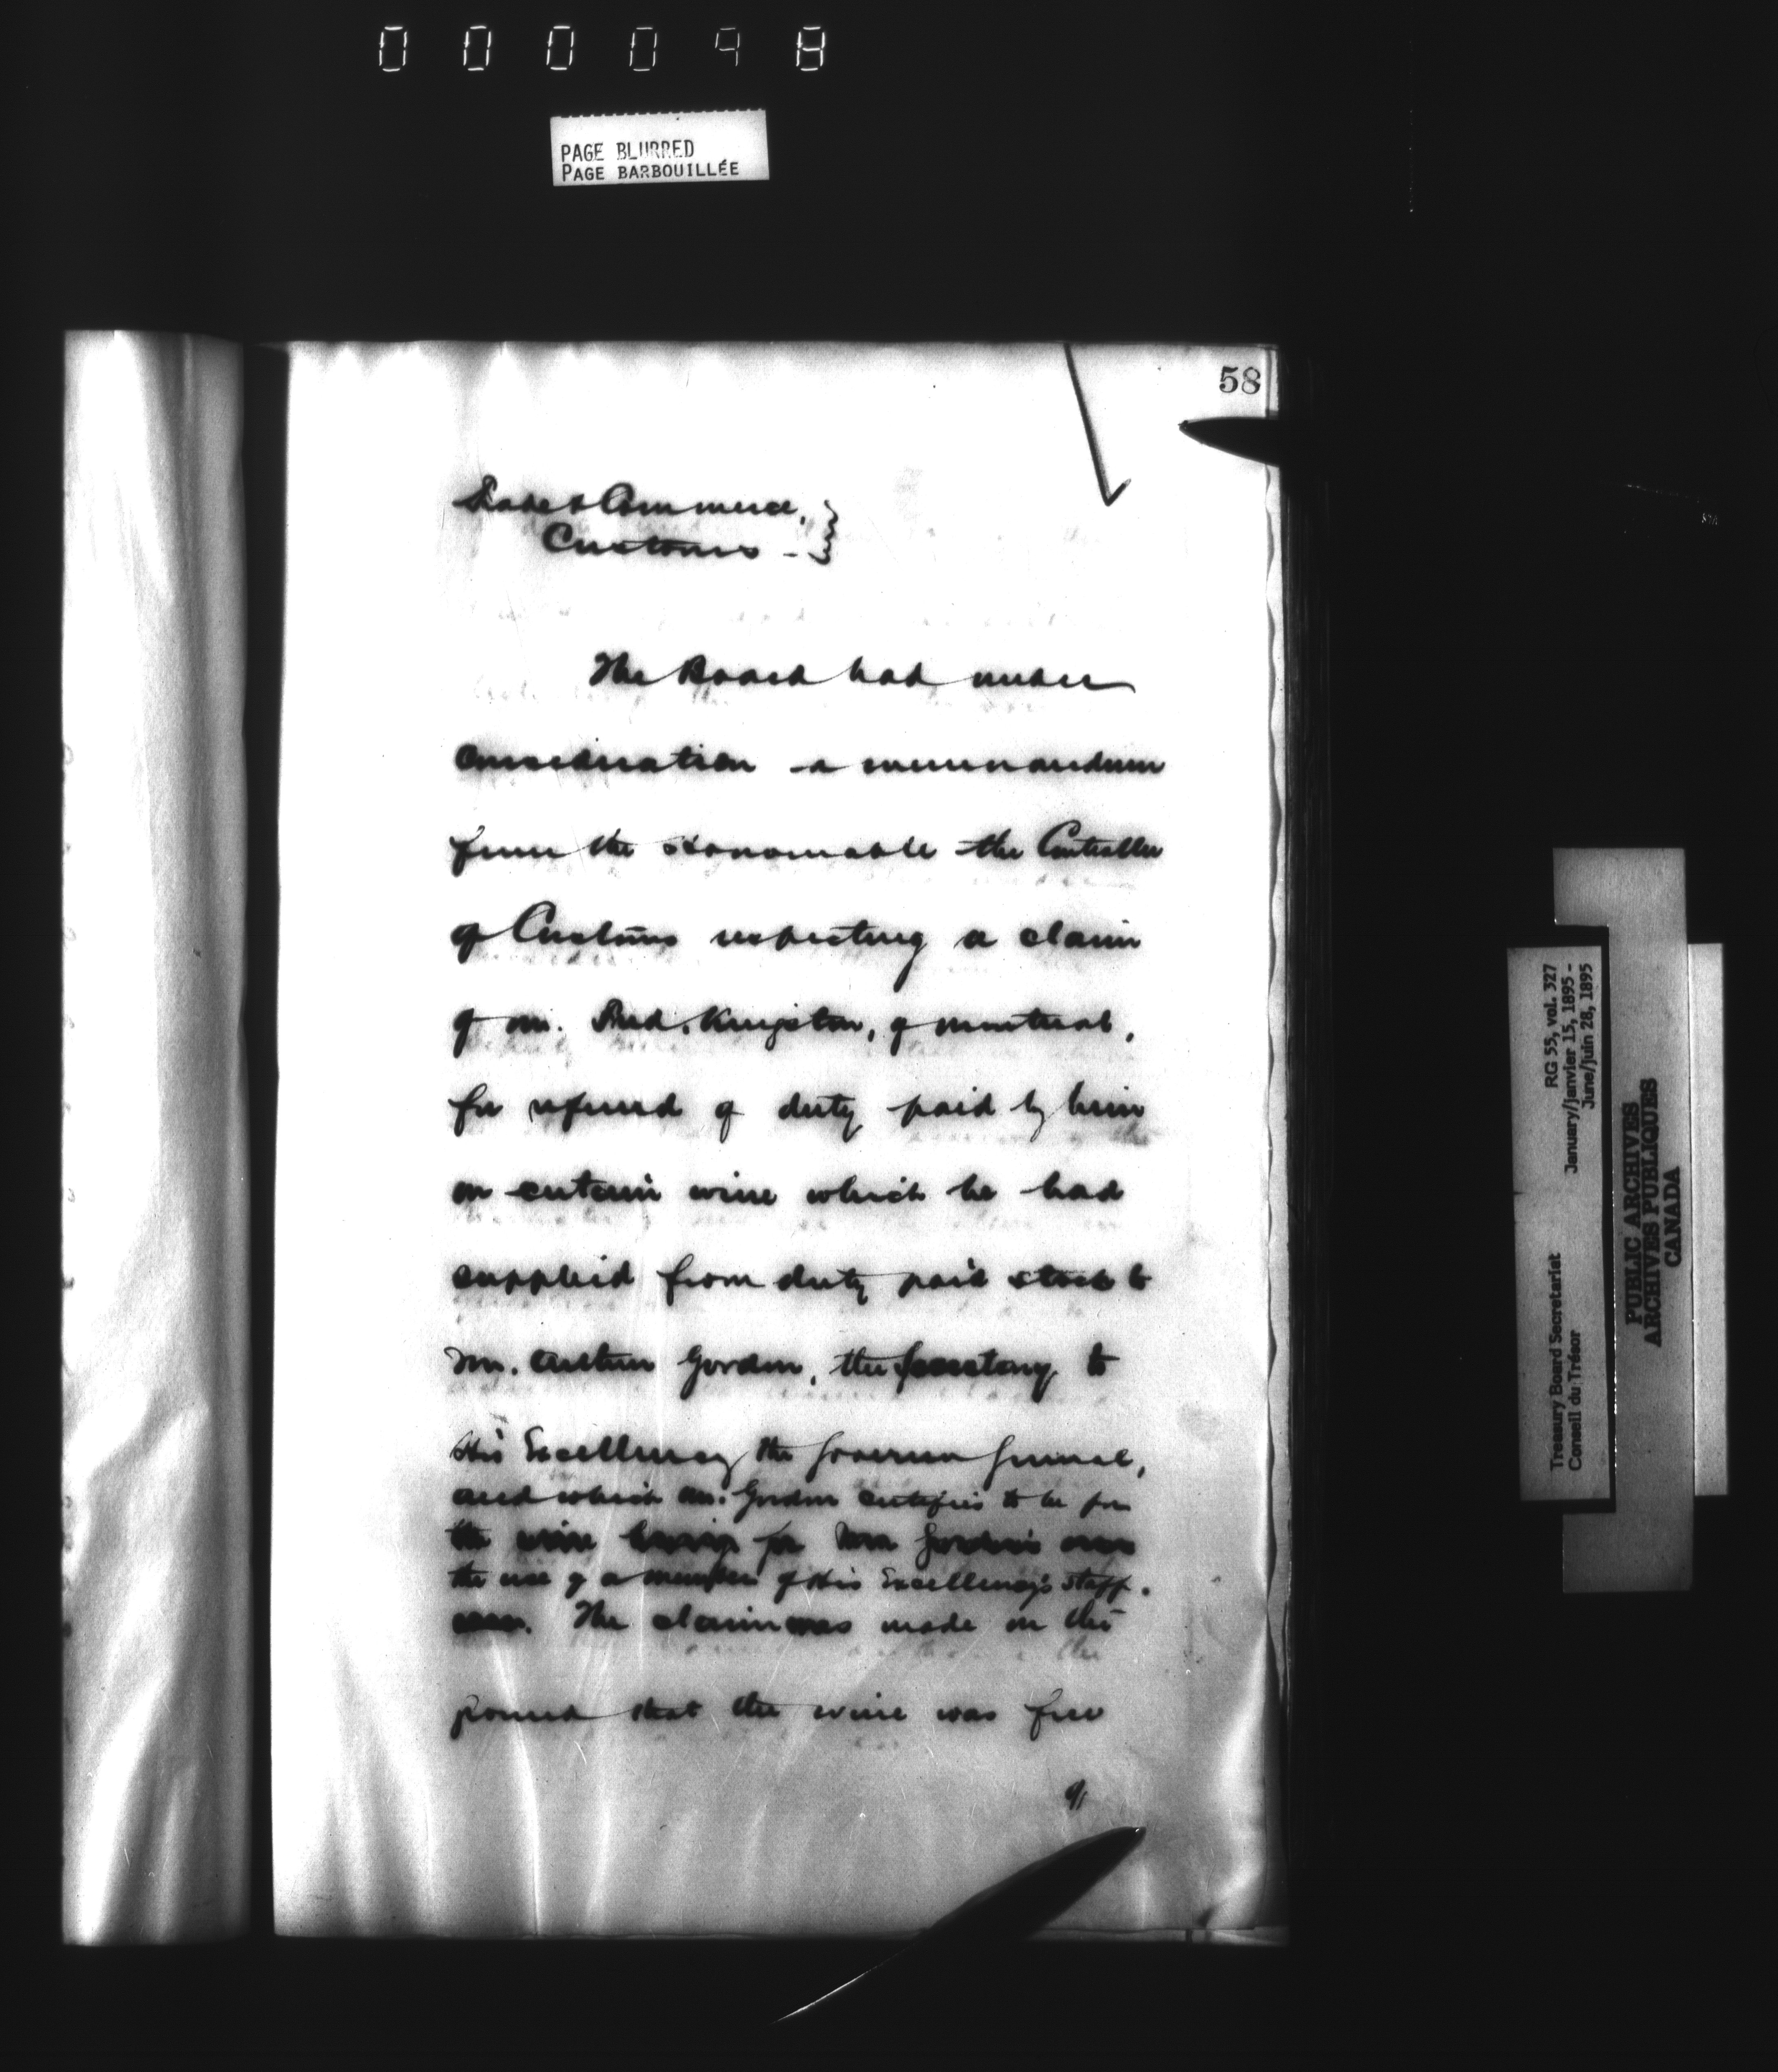 000098
PAGE BLURRED
PAGE BARBOUILLÉE
58
Trade & Commerce,
Customs -
The Board had under
consideration a memorandum
from the Honourable the Controller
of Customs respecting a claim
of Mr. Fred. Kingston, of Montreal,
for refund of duty paid by him
on certain wine which he had
supplied from duty paid stock to
Mr. Arthur Gordon, the Secretary to
His Excellency the Governor General,
and which Mr. Gordon certifies to be for
the wine being for Mr. Gordon's own
the use of a member of His Excellency's staff.
use. The claim was made on the
ground that the wine was free
of
RG 55, vol. 327
January/janvier 15, 1895 -
June/juin 28, 1895
Treasury Board Secretariat
Conseil du Trésor
PUBLIC ARCHIVES
ARCHIVES PUBLIQUES
CANADA